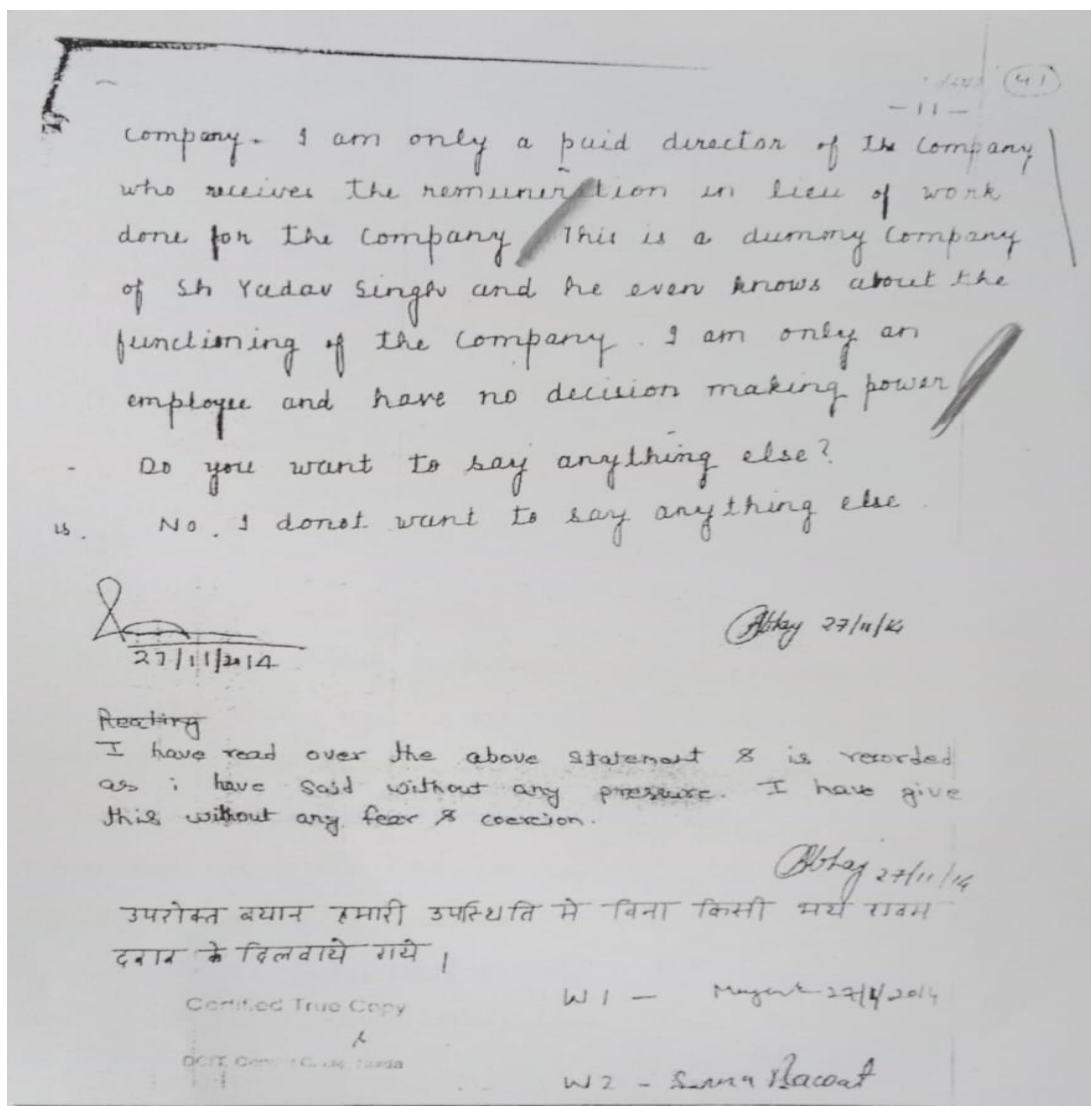 41
-11-
company. I am only a paid director of the company
who receives the remuneration in lieu of work
done for the company This is a dummy company
of Sh Yadav Singh and he even knows about the
functioning of the company. I am only an
employee and have no decision making power
- Do you want to say anything else?
No. I donot want to say anything else.
27/11/2014
Abhay 27/11/14
Reading
I have read over the above statement & is recorded
as i have said without any pressure. I have give
this without any fear & coercion.
Abhay 27/11/14
उपरोक्त बयान हमारी उपस्थिति मे बिना किसी भय एवम
दबाब के दिलवाये गये ।
Certified True Copy
W1 - Mayank 27/11/2014
DCIT, Noida
W2 -